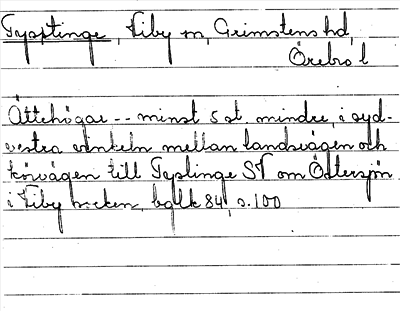 Tysslinge, Viby sn, Grimstens hd,
Örebro l
Ättehögar -- minst 5 st. mindre, i syd-
vestra vinkeln mellan landsvägen och
körvägen till Tyslinge SV om Östersjön
i Viby socken, bglk 84, s. 100